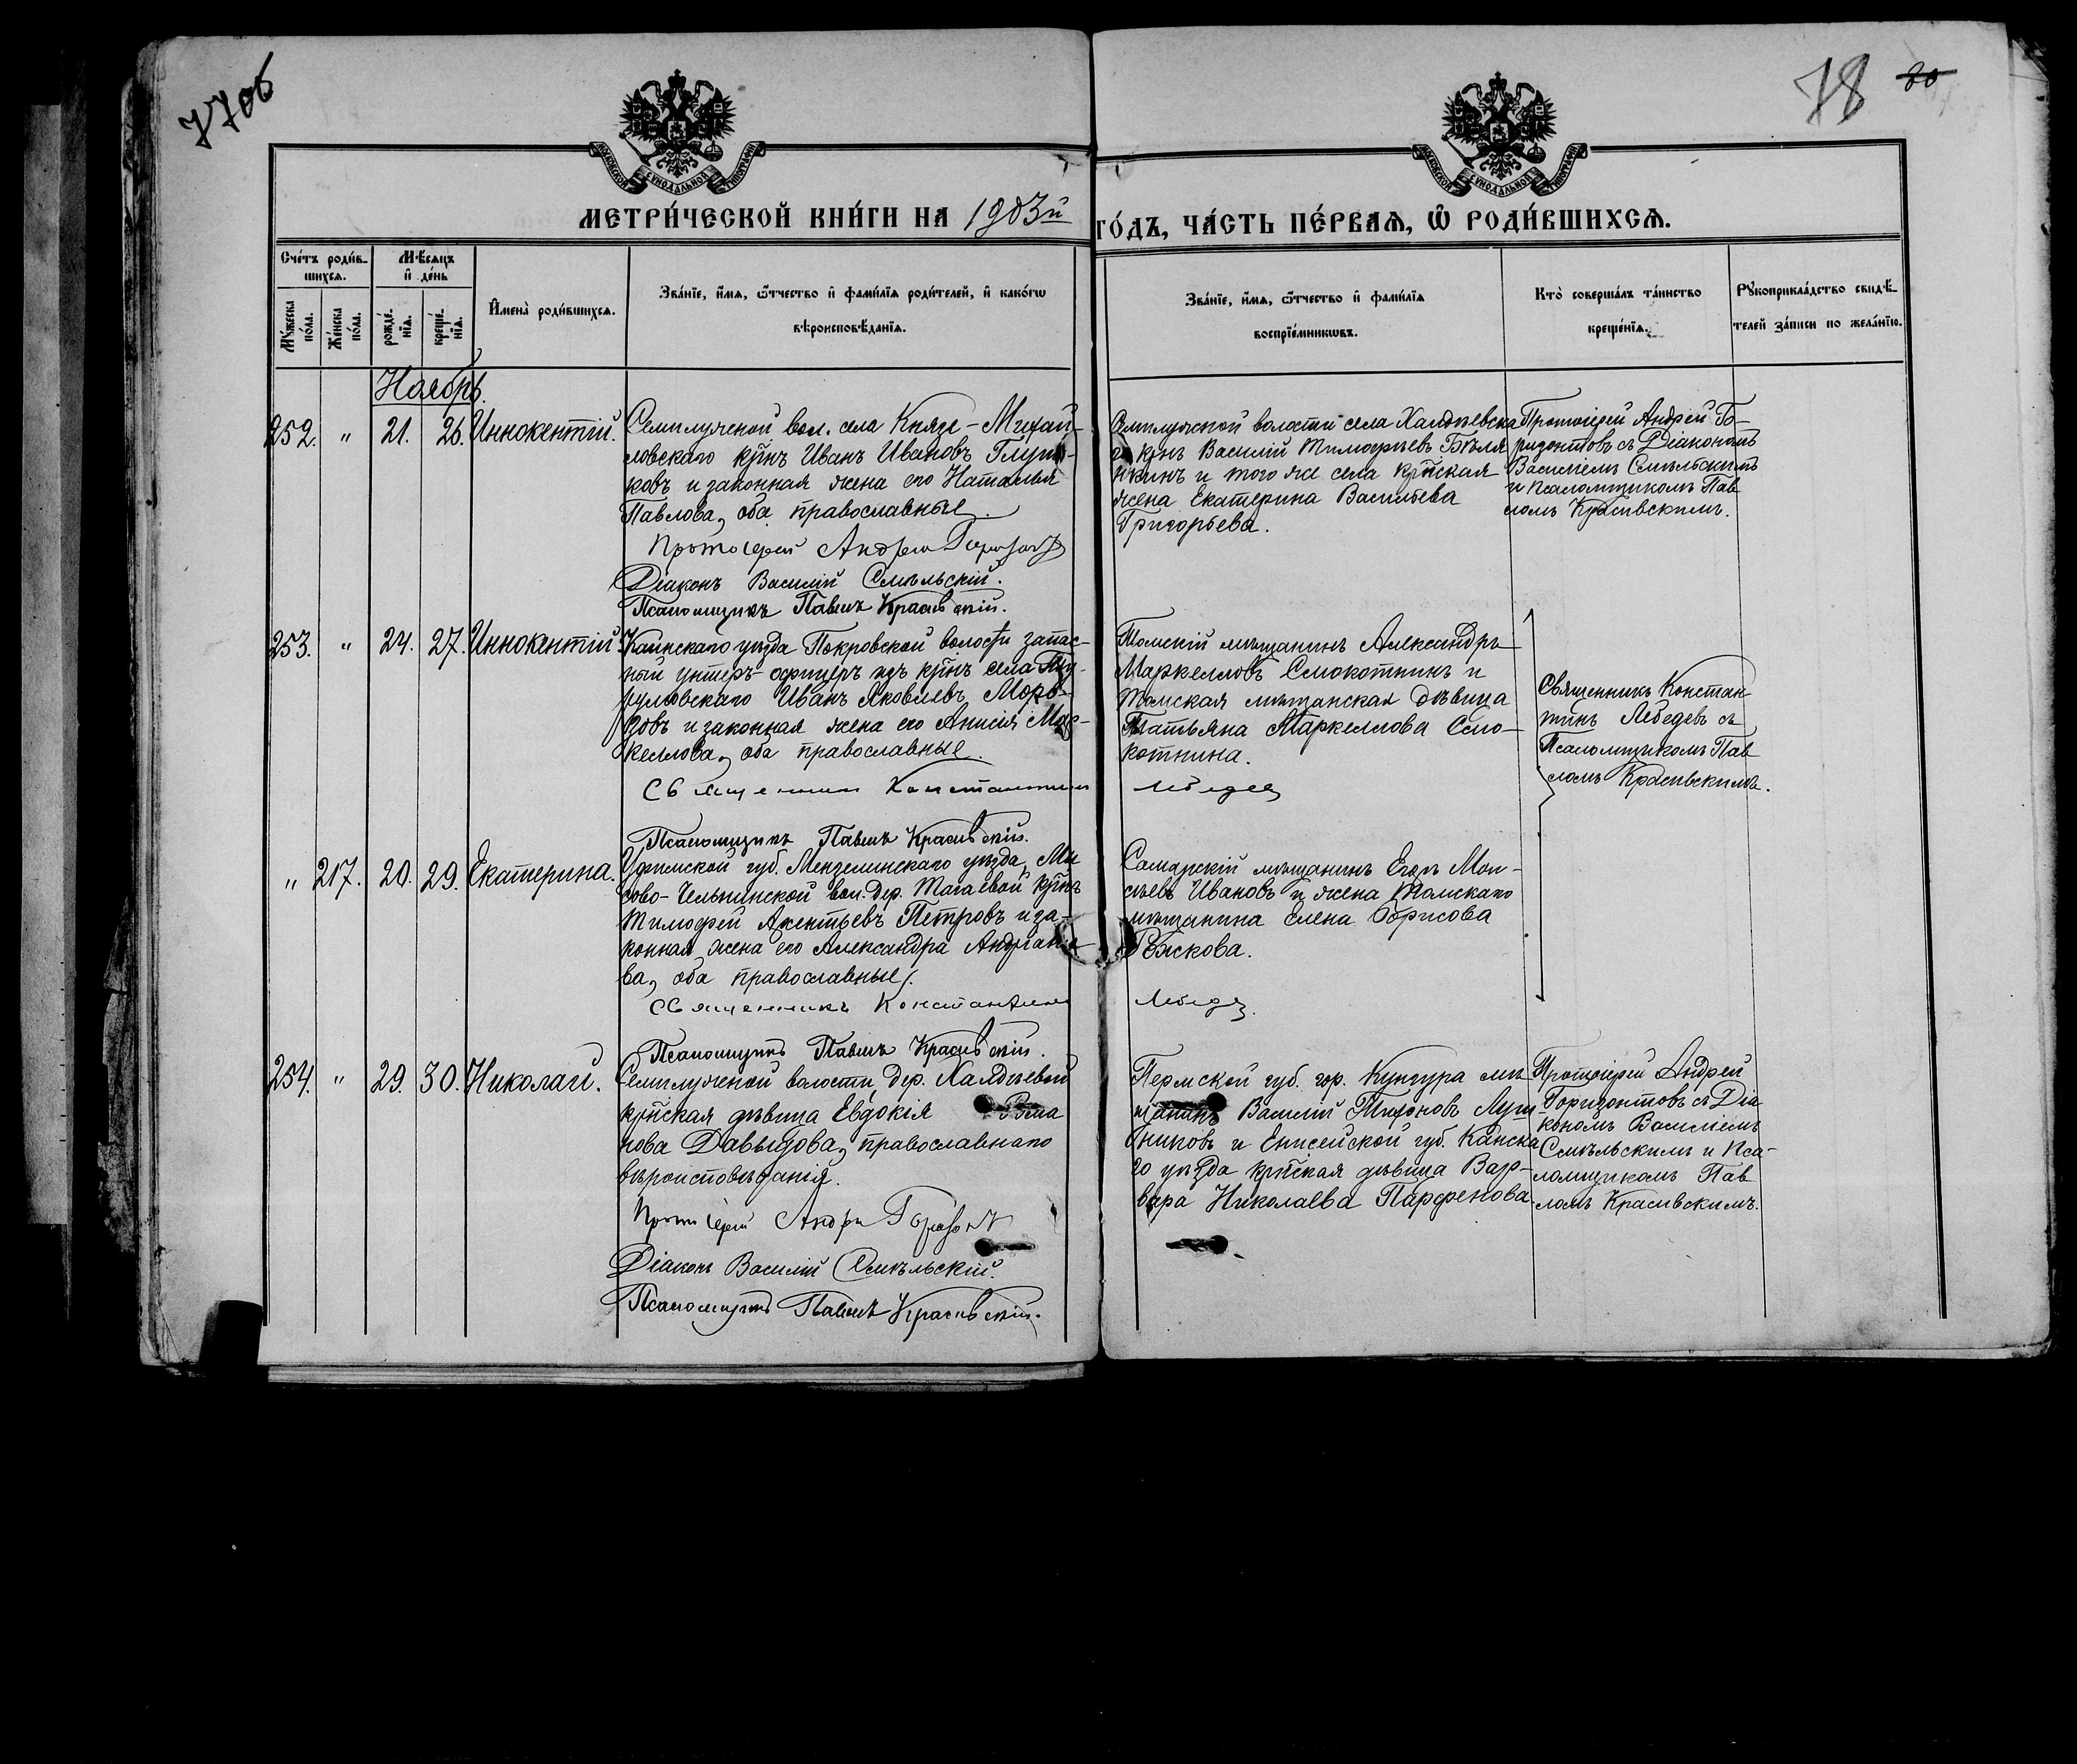 77об
78 80
МОСКОВСКОЙ СѴНОДАЛЬНОЙ ТИПОГРАФІИ
МОСКОВСКОЙ СѴНОДАЛЬНОЙ ТИПОГРАФІИ
МЕТРИ́ЧЕСКОЙ КНИ́ГИ НА 1903й
ГО́ДЪ, ЧА́СТЬ ПЕ́РВАѦ, Ѡ҆ РОДИ́ВШИХСѦ.
Сче́тъ роди́в-
шихсѧ.
Мꙋ́жеска по́ла.
Же́нска по́ла.
Мѣ́сѧцъ
и҆ де́нь
рожде́-
нїѧ.
креще́-
нїѧ.
И҆мена̀ роди́вшихсѧ.
Зва́нїе, и҆́мѧ, ѻ҆́тчество и҆ фами́лїѧ роди́телей, и҆ како́гѡ
вѣроисповѣ́данїѧ.
Зва́нїе, и҆́мѧ, ѻ҆́тчество и҆ фами́лїѧ
воспрїе́мникѡвъ.
Кто̀ соверша́лъ та́инство
креще́нїѧ.
Рꙋкоприкла́дство свидѣ́-
телей за́писи по жела́нїю.
Ноябрь.
252. " 21. 26. Иннокентій.
Семилужной вол. села Князе-Михай-
ловскаго кр̃нъ Иванъ Ивановъ Глуш-
ковъ и законная жена его Наталья
Павлова, оба православные.
Протоіерей Андрей Горизонтовъ
Діаконъ Василій Смѣльскій.
Псаломщикъ Павелъ Красивскій.
Семилужной волости села Халдѣевска-
го кр̃нъ Василій Тимофѣевъ Бѣля
нкинъ и того же села кр̃нская
жена Екатерина Васильева
Григорьева.
Протоіерей Андрей Го-
ризонтовъ съ Діакономъ
Василіемъ Смѣльскимъ
и псаломщикомъ Пав
ломъ Красивскимъ.
253. " 24. 27. Иннокентій.
Каинскаго уѣзда Покровской волости запас-
ный унтеръ-офицеръ изъ кр̃нъ села
Иванъ Яковлевъ Моро-
зовъ и законная жена его Анисія Мар-
келлова, оба православные.
Священникъ Константинъ Лебедев
Псаломщикъ Павелъ Красивскій.
Томскій мѣщанинъ Александръ
Маркелловъ Смокотнинъ и
Томская мѣщанская дѣвица
Татьяна Маркеллова Смо-
котнина.
Священникъ Констан-
тинъ Лебедевъ съ
Псаломщикомъ Пав
ломъ Красивскимъ.
" 217. 20. 29. Екатерина.
Уфимской губ. Мензелинскаго уѣзда, Мы
сово-Челнинской вол. дер. Тагаевой кр̃нъ
Тимофей Акентьевъ Петровъ и за-
конная жена его Александра Андріано-
ва, оба православные.
Священникъ Константинъ Лебедев.
Псаломщикъ Павелъ Красивскій.
Самарскій мѣщанинъ Егоръ Мои-
сѣевъ Ивановъ и жена Томскаго
мѣщанина Елена Борисова
Ряскова.
254. " 29. 30. Николай.
Семилужной волости, дер. Халдѣевой
кр̃нская дѣвица Евдокія Рома
нова Давыдова, православнаго
вѣроисповѣданія.
Протоіерей Андрей Горизонтовъ
Діаконъ Василій Смѣльскій.
Псаломщикъ Павелъ Красивскій.
Пермской губ. гор. Кунгура мѣ-
щанинъ Василій Тихоновъ Луш-
никовъ и Енисейской губ. Канска-
го уѣзда кр̃нская дѣвица Вар-
вара Николаева Парфенова.
Протоіерей Андрей
Горизонтовъ съ Діа
кономъ Василіемъ
Смѣльскимъ и Пса-
ломщикомъ Пав
ломъ Красивскимъ.